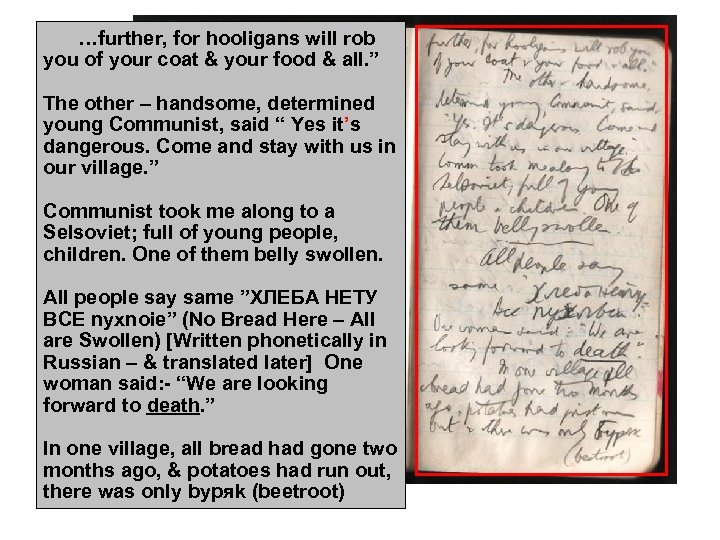 …further, for hooligans will rob
you of your coat & your food & all. ”
The other – handsome, determined
young Communist, said “ Yes it’s
dangerous. Come and stay with us in
our village. ”
Communist took me along to a
Selsoviet; full of young people,
children. One of them belly swollen.
All people say same ”ХЛЕБА НЕТУ
ВСЕ nyxnoie” (No Bread Here – All
are Swollen) [Written phonetically in
Russian – & translated later] One
woman said: - “We are looking
forward to death. ”
In one village, all bread had gone two
months ago, & potatoes had run out,
there was only bypяk (beetroot)
further, for hooligans will rob you
of your coat & your food & all."
The other – handsome,
determined young Communist, said
"Yes. It's dangerous. Come and
stay with us in our village."
took me along to
Selsoviet; full of young
people & children. One of
them belly swollen.
All people say
same
One woman said: "We are
looking forward to death."
In one village all
bread had gone two months
ago, potatoes had
there was only
(beetroot)